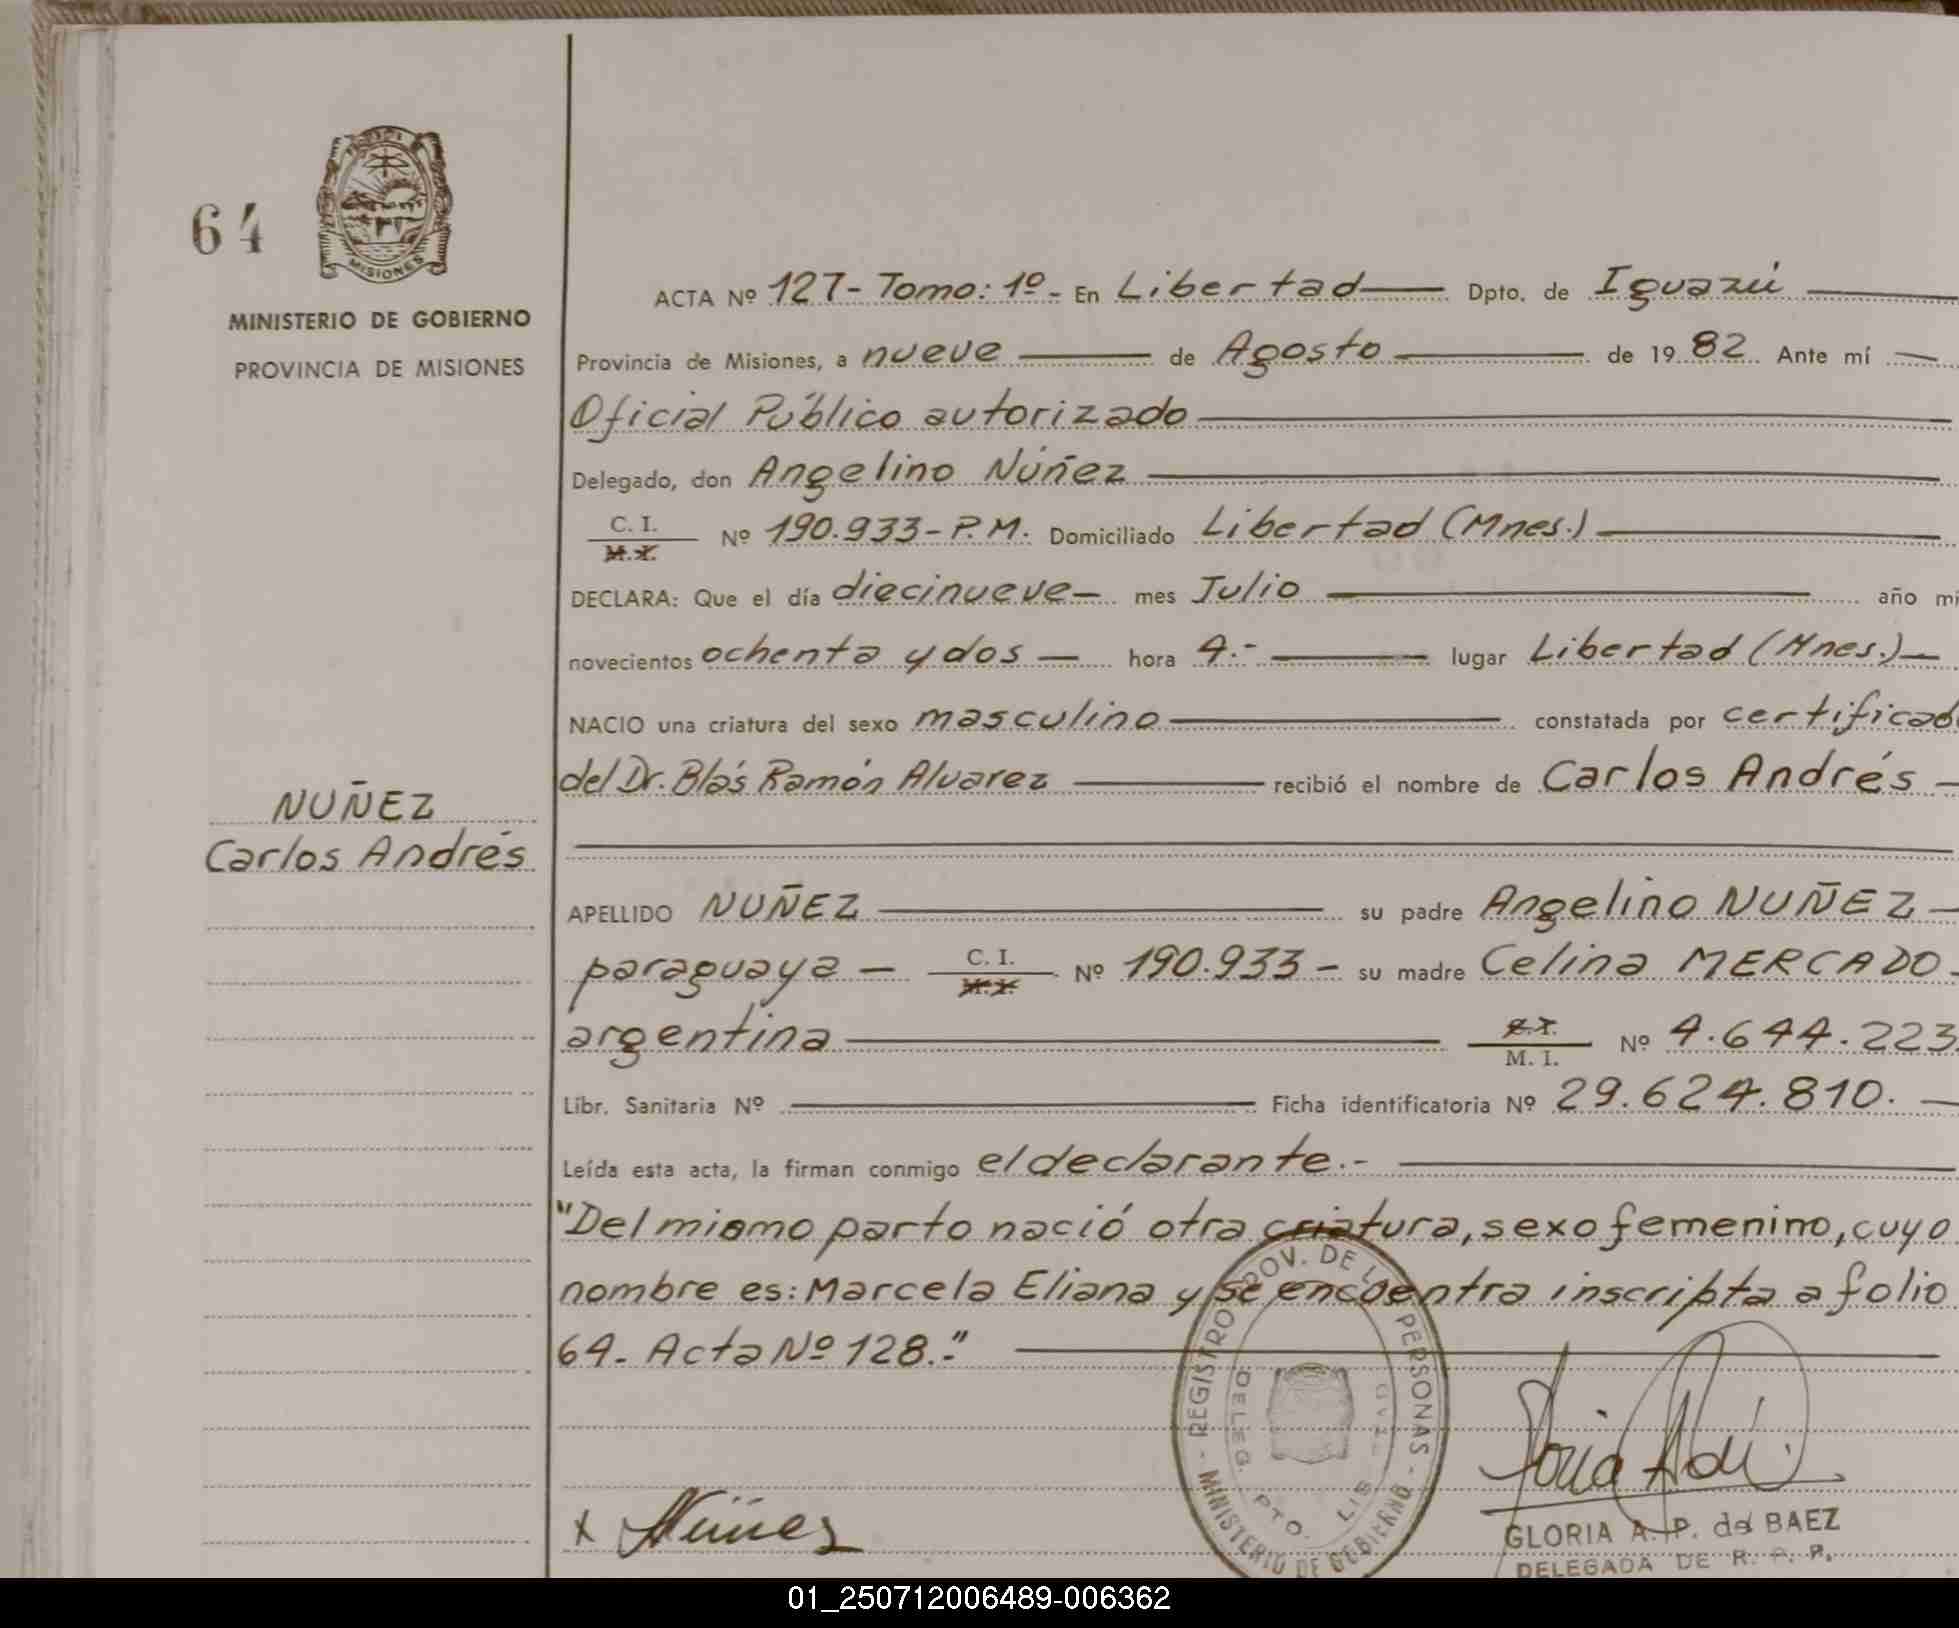 64
MISIONES
MINISTERIO DE GOBIERNO
PROVINCIA DE MISIONES
NUÑEZ
Carlos Andrés
ACTA Nº 127- Tomo: 1º- En Libertad Dpto. de Iguazú
Provincia de Misiones, a nueve de Agosto de 1982 Ante mí
Oficial Público autorizado
Delegado, don Angelino Núñez
C. I. M. I. Nº 190.933-P.M. Domiciliado Libertad (Mnes.)
DECLARA: Que el día diecinueve- mes Julio año mi
novecientos ochenta y dos - hora 4.- lugar Libertad (Mnes.)-
NACIO una criatura del sexo masculino constatada por certificado
del Dr. Blás Ramón Alvarez recibió el nombre de Carlos Andrés -
APELLIDO NUÑEZ su padre Angelino NUÑEZ -
paraguaya - C. I. M. I. Nº 190.933- su madre Celina MERCADO-
argentina C. I. M. I. Nº 4.644.223
Libr. Sanitaria Nº Ficha identificatoria Nº 29.624.810.
Leída esta acta, la firman conmigo el declarante.-
"Del mismo parto nació otra criatura, sexo femenino, cuyo
nombre es: Marcela Eliana y se encuentra inscripta a folio
64- Acta Nº 128.-"
REGISTRO PROV. DE LAS PERSONAS - MINISTERIO DE GOBIERNO -
DELEG.
PTO. LIB
x Núñez
GLORIA A. P. de BAEZ
DELEGADA DE R. P. P.
01_250712006489-006362